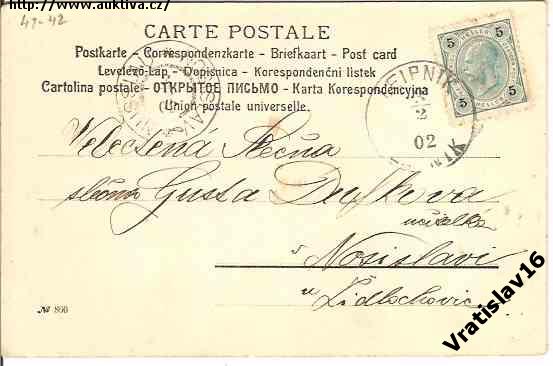 http://www.auktiva.cz/
41-42
CARTE POSTALE
Postkarte – Correspondenzkarte – Briefkaart – Post card
Levelező-Lap. – Dopisnica – Korespondenční listek
Cartolina postale – ОТКРЫТОЕ ПИСЬМО – Karta Korespondencyjna
Union postale universelle.
5 5
5 5
HELLER HELLER
LEIPNIK
2
02
LIPNIK
Velectěná Slečna
slečna Gusta
učitelka
v Nosislavi
u Židlochovic
№ 860
Vratislav16